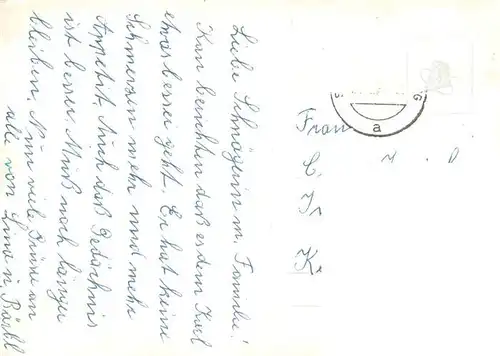 Liebe Schwägerin m. Familie!
Kan berichten daß es dem Karl
etwas besser geht. Er hat keine
Schmerzen mehr und mehr
Appetit. Auch das Gedächnis
ist besser. Muß noch länger
bleiben. Nun viele Grüße an
alle von Lina u. Bärbl
Frau
a